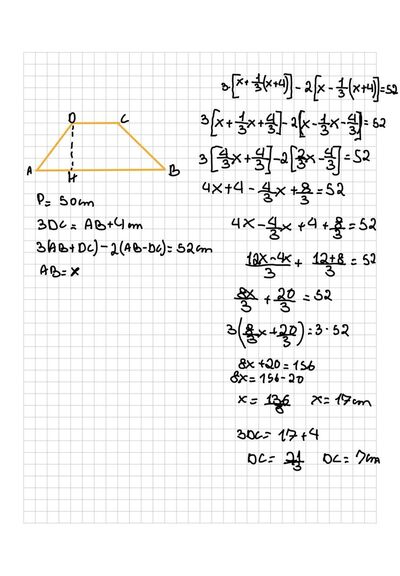 D C
A H B
P = 50cm
3DC = AB+4cm
3(AB+DC)-2(AB-DC)=52cm
AB=x
3[x+1/3(x+4)]-2[x-1/3(x+4)]=52
3[x+1/3x+4/3]-2[x-1/3x-4/3]=52
3[4/3x+4/3]-2[2/3x-4/3]=52
4x+4-4/3x+8/3=52
4x-4/3x+4+8/3=52
(12x-4x)/3+(12+8)/3=52
8x/3+20/3=52
3(8/3x+20/3)=3·52
8x+20=156
8x=156-20
x=136/8 x=17cm
3DC=17+4
DC=21/3 DC=7cm